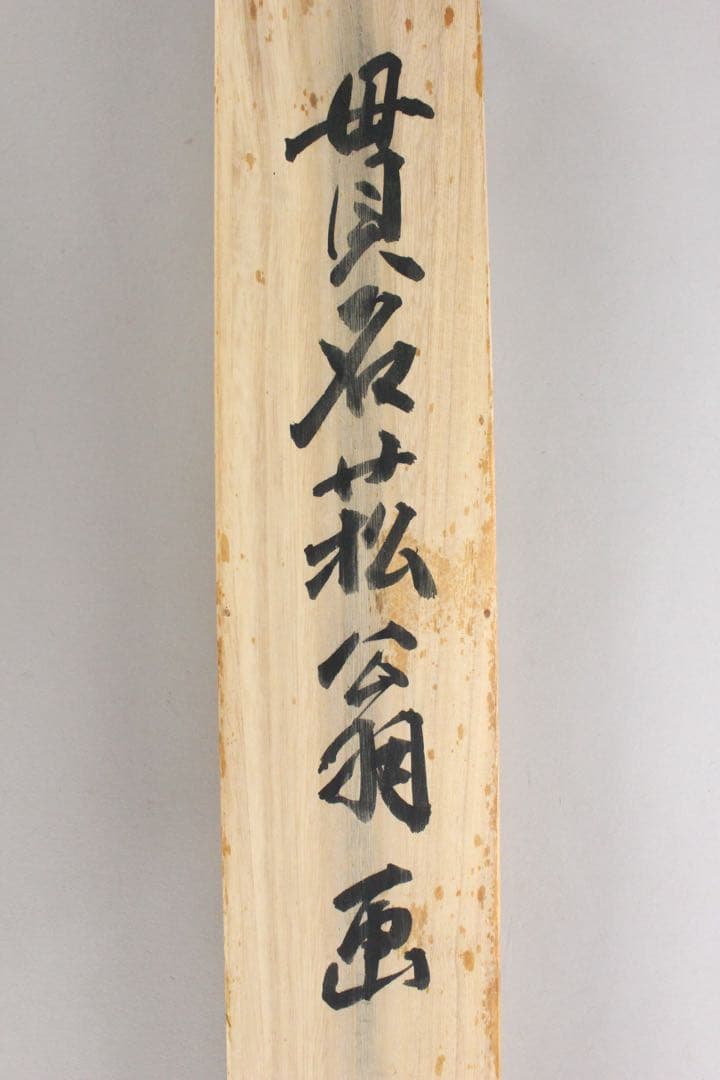 貫名菘翁画